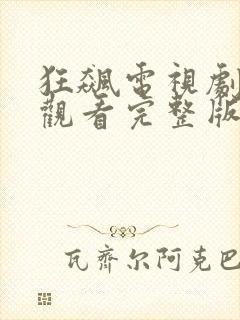 狂飆電視劇
觀看完整版
瓦齊尔阿克巴